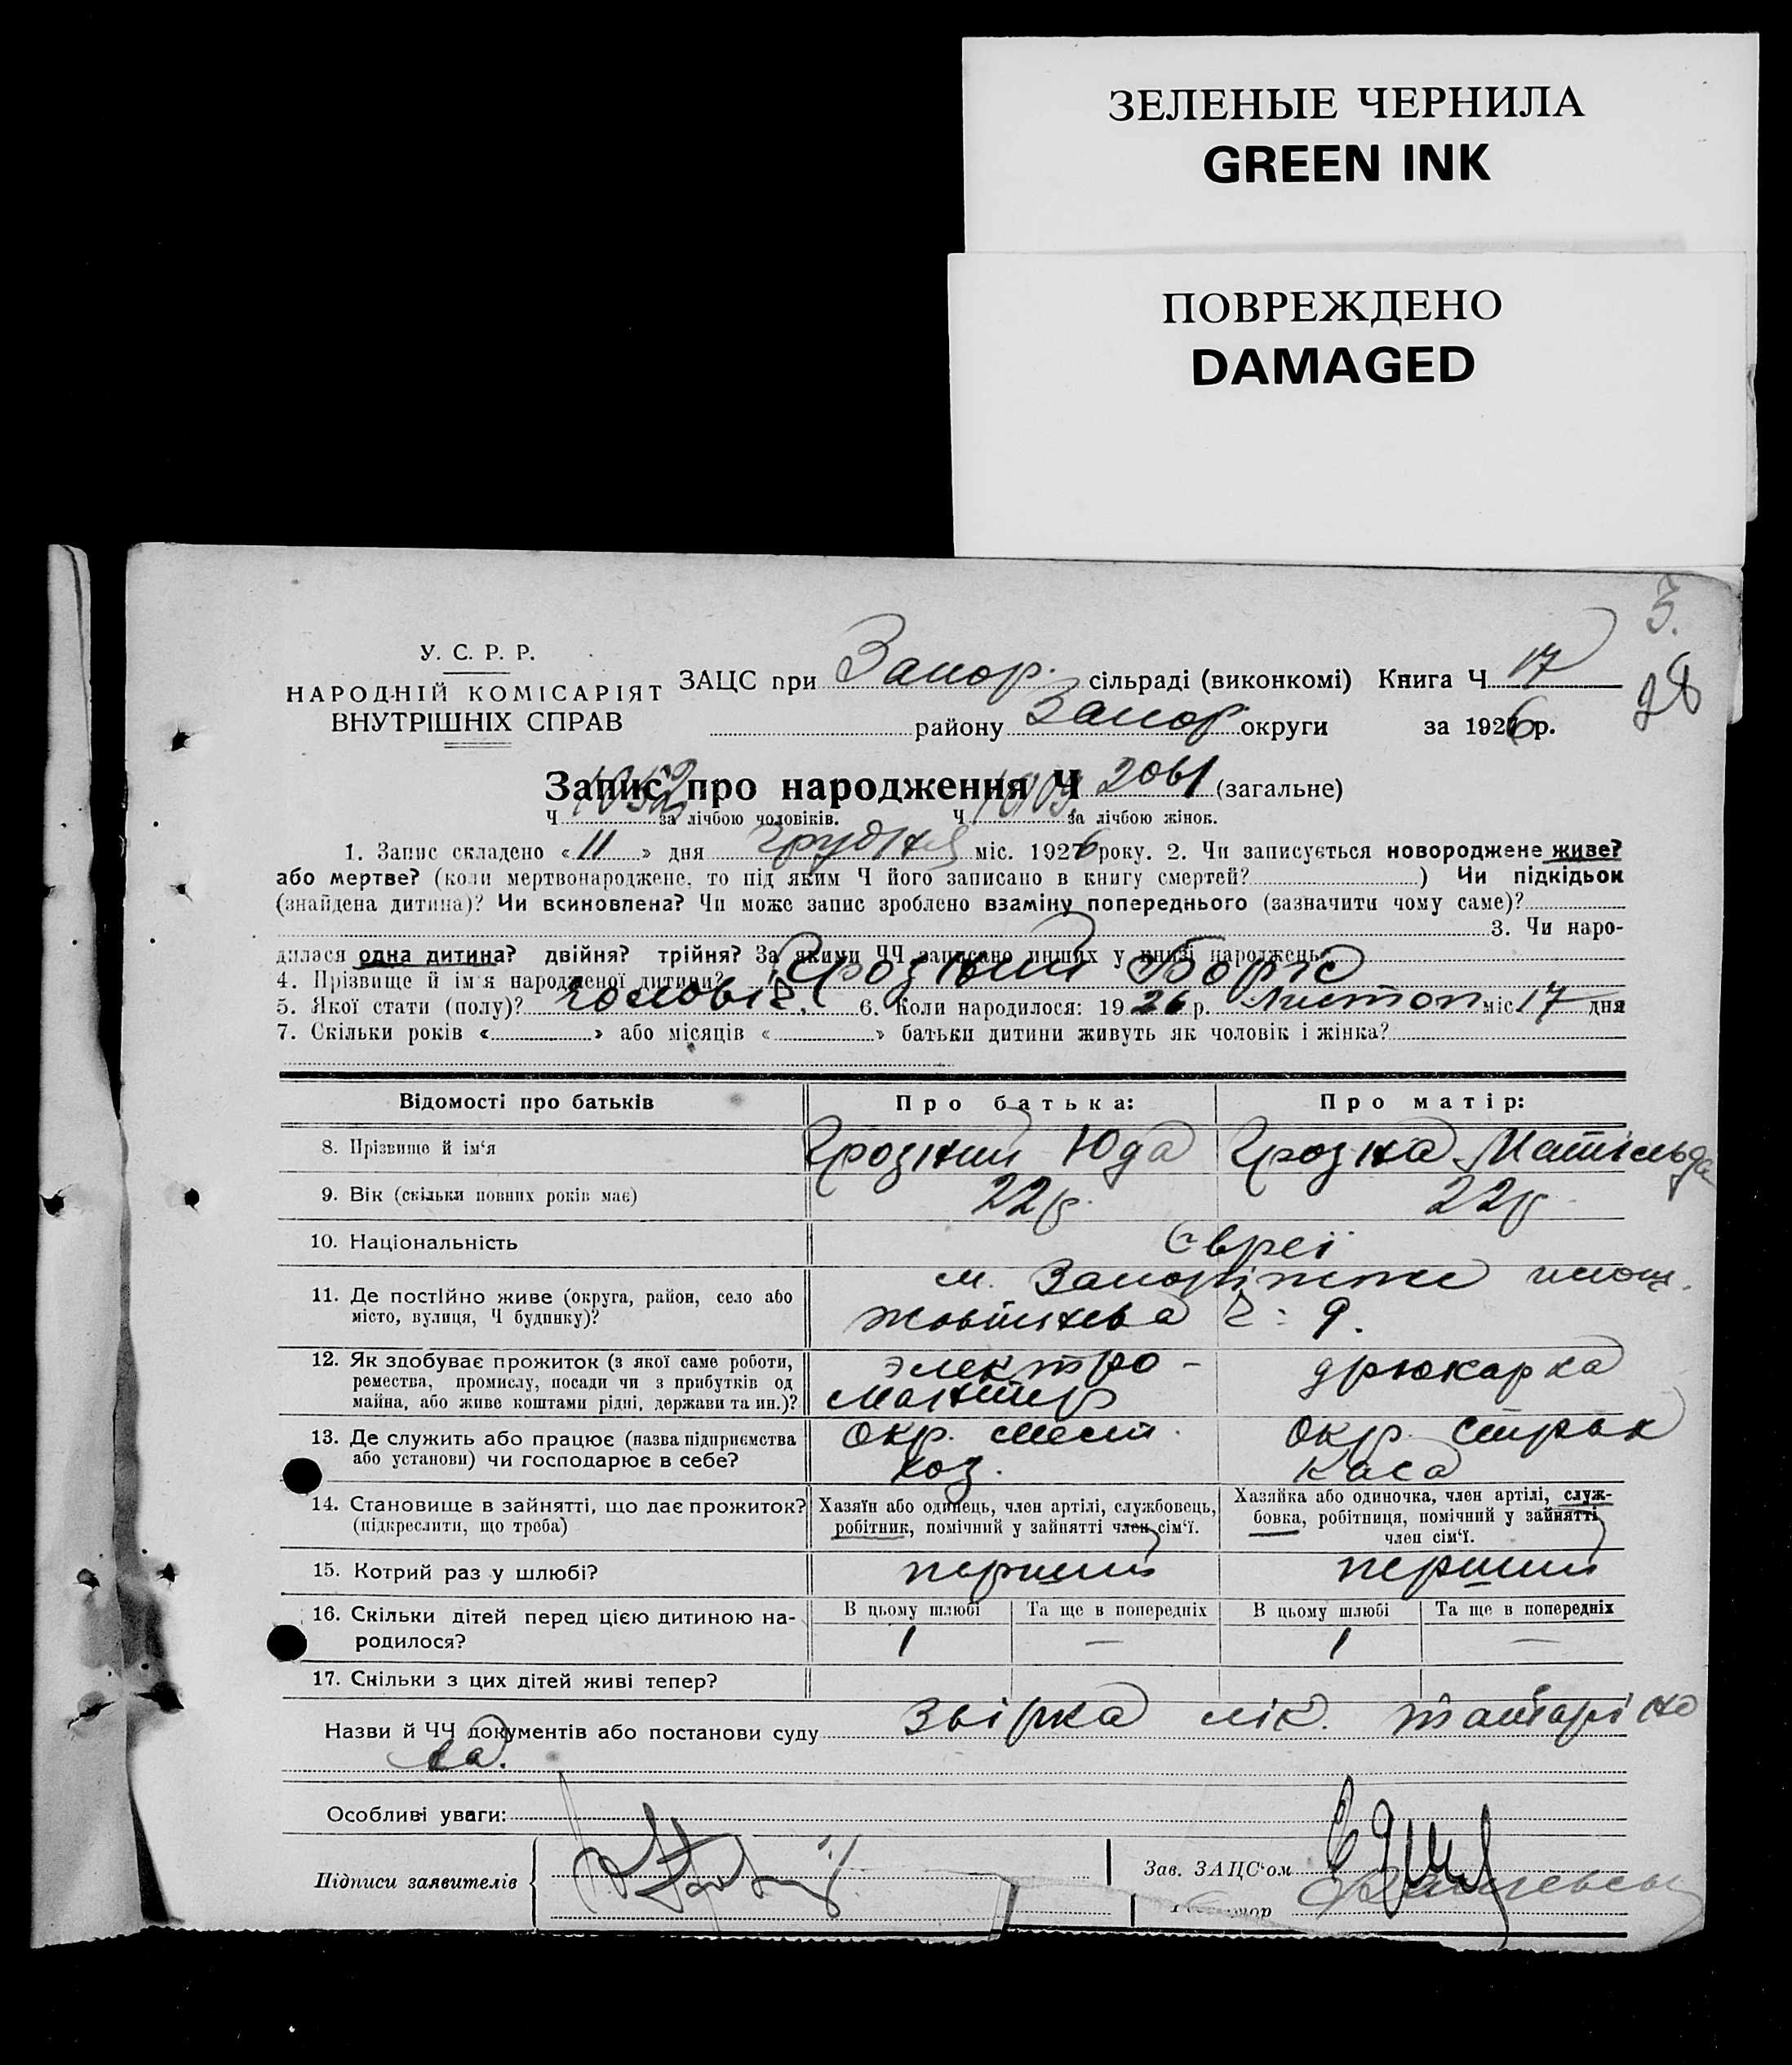 ЗЕЛЕНЫЕ ЧЕРНИЛА
GREEN INK
ПОВРЕЖДЕНО
DAMAGED
3.
28
У. С. Р. Р.
НАРОДНІЙ КОМІСАРІЯТ
ВНУТРІШНІХ СПРАВ
ЗАЦС при Запор. сільраді (виконкомі) Книга Ч 17
району Запор округи за 1926 р.
Запис про народження Ч 2061 (загальне)
Ч 1052 за лічбою чоловіків. Ч 1009 за лічбою жінок.
1. Запис складено «11» дня грудня міс. 1926 року. 2. Чи записується новороджене живе?
або мертве? (коли мертвонароджене, то під яким Ч його записано в книгу смертей?) Чи підкідьок
(знайдена дитина)? Чи всиновлена? Чи може запис зроблено взаміну попереднього (зазначити чому саме)?
3. Чи наро-
дилася одна дитина? двійня? трійня? За якими ЧЧ записано инших у книзі народжень
4. Прізвище й ім'я народженої дитини? Грозний Боріс
5. Якої стати (полу)? чоловіч. 6. Коли народилося: 1926 р. Листоп міс. 17 дня
7. Скільки років « » або місяців « » батьки дитини живуть як чоловік і жінка?
Відомості про батьків Про батька: Про матір:
8. Прізвище й ім'я Грозний Юда Грозна Матільда
9. Вік (скільки повних років має) 22 р. 22 р.
10. Національність Євреї
11. Де постійно живе (округа, район, село або місто, вулиця, Ч будинку)? м. Запоріжже площ.
Жовтнева Ч: 9.
12. Як здобуває прожиток (з якої саме роботи, ремества, промислу, посади чи з прибутків од майна, або живе коштами рідні, держави та ин.)? электро-
монтир друкарка
13. Де служить або працює (назва підприємства або установи) чи господарює в себе? Окр. мест.
хоз. Окр. страх
каса
14. Становище в зайнятті, що дає прожиток? (підкреслити, що треба)
Хазяїн або одинець, член артілі, службовець,
робітник, помічний у зайнятті член сім'ї.
Хазяйка або одиночка, член артілі, служ-
бовка, робітниця, помічний у зайнятті
член сім'ї.
15. Котрий раз у шлюбі? перший перший
16. Скільки дітей перед цією дитиною на-
родилося?
В цьому шлюбі Та ще в попередніх В цьому шлюбі Та ще в попередніх
1 — 1 —
17. Скільки з цих дітей живі тепер?
Назви й ЧЧ документів або постанови суду Звірка лік.
Особливі уваги:
Підписи заявителів
Зав. ЗАЦС'ом